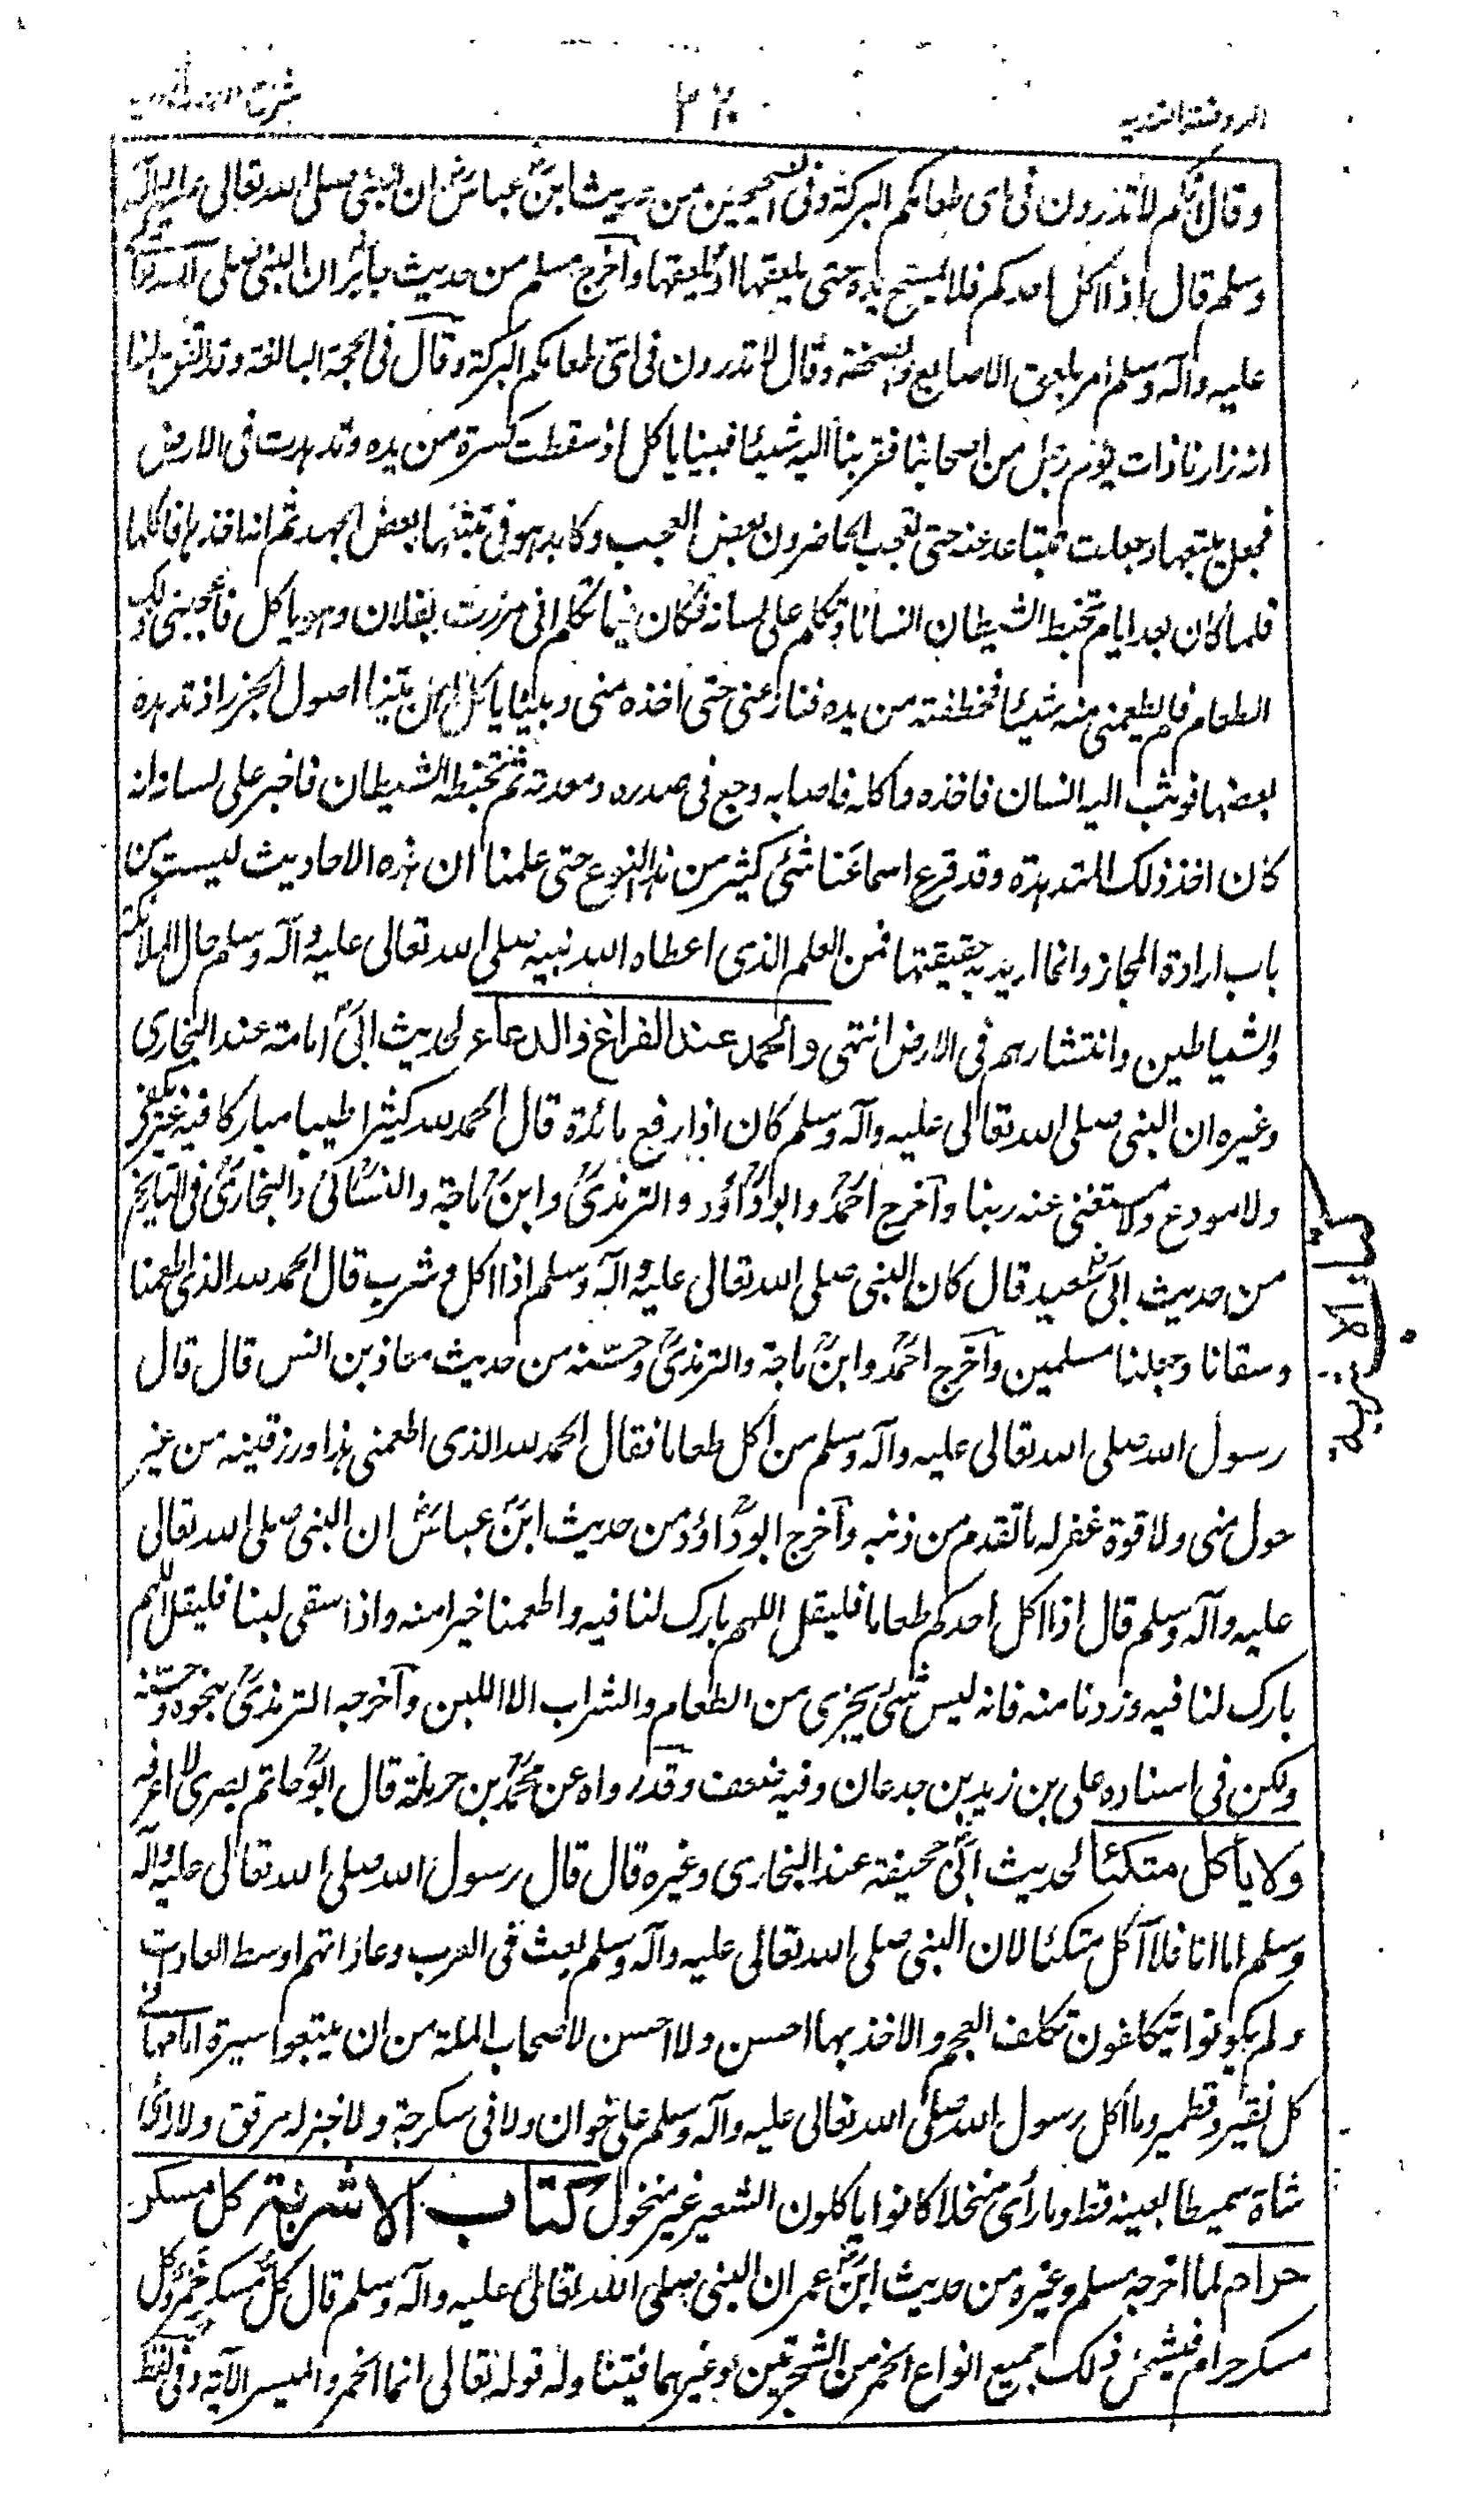 الروضة الندية
وقال انكم لا تدرون فى اى طعامكم البركة وفى الصحيحين من حديث ابن عباس ان النبى صلى الله تعالى عليه وآله
وسلم قال اذا اكل احدكم فلا يمسح يده حتى يلعقها او يلعقها وآخرج مسلم من حديث جابر ان النبى صلى الله تعالى
عليه وآله وسلم امر بلعق الاصابع والصحفة وقال لا تدرون فى اى طعامكم البركة وقال فى الحجة البالغة وقد اتفق لنا
انه زارنا ذات يوم رجل من اصحابنا فقربنا اليه شيئا فبينا ياكل اذ سقطت كسرة من يده وتدهدت فى الارض
فجعل يتبعها وجعلت تتباعد عنه حتى تعجب الحاضرون بعض العجب وكابد هو فى تتبعها بعض الجهد ثم انه اخذها فاكلها
فلما كان بعد ايام تخبط الشيطان انسانا وتكلم على لسانه فكان فيما تكلم انى مررت بفلان وهو ياكل فاعجبنى ذلك
الطعام فلم يطعمنى منه شيئا فخطفته من يده فنازعنى حتى اخذه منى وبينا ياكل اهل بيتنا اصول الجزر اذ تدهده
بعضها فوثب اليه انسان فاخذه واكله فاصابه وجع فى صدره ومعدته ثم تخبطه الشيطان فاخبر على لسانه انه
كان اخذ ذلك المتدهدة وقد قرع اسماعنا شئ كثير من هذا النوع حتى علمنا ان هذه الاحاديث ليست من
باب ارادة المجاز وانما اريد بها حقيقتها فمن العلم الذى اعطاه الله نبيه صلى الله تعالى عليه وآله وسلم حال الملائكة
والشياطين وانتشارهم فى الارض انتهى والحمد عند الفراغ والدعاء لحديث ابى امامة عند البخارى
وغيره ان النبى صلى الله تعالى عليه وآله وسلم كان اذا رفع مائدة قال الحمد لله كثيرا طيبا مباركا فيه غير مكفى
ولا مودع ولا مستغنى عنه ربنا وآخرج احمد وابو داؤد والترمذى وابن ماجة والنسائى والبخارى فى التاريخ
من حديث ابى سعيد قال كان النبى صلى الله تعالى عليه وآله وسلم اذا اكل و شرب قال الحمد لله الذى اطعمنا
وسقانا وجعلنا مسلمين وآخرج احمد وابن ماجة والترمذى وحسنه من حديث معاذ بن انس قال قال
رسول الله صلى الله تعالى عليه وآله وسلم من اكل طعاما فقال الحمد لله الذى اطعمنى هذا ورزقينه من غير
حول منى ولا قوة غفر له ما تقدم من ذنبه وآخرج ابو داؤد من حديث ابن عباس ان النبى صلى الله تعالى
عليه وآله وسلم قال اذا اكل احدكم طعاما فليقل اللهم بارك لنا فيه واطعمنا خيرا منه واذا سقى لبنا فليقل اللهم
بارك لنا فيه وزدنا منه فانه ليس شئ يجزى من الطعام والشراب الا اللبن وآخرجه الترمذى بنحوه وحسنه
ولكن فى اسناده على بن زيد بن جدعان وفيه ضعف وقد رواه عن محمد بن حرملة قال ابو حاتم بصرى لا اعرفه
ولا يأكل متكئا لحديث ابى جحيفة عند البخارى وغيره قال قال رسول الله صلى الله تعالى عليه وآله
وسلم اما انا فلا آكل متكئا لان النبى صلى الله تعالى عليه وآله وسلم بعث فى العرب وعاداتهم اوسط العادات
ولم يكونوا يتكلفون تكلف العجم والاخذ بها احسن ولا احسن لاصحاب الملة من ان يتبعوا سيرة امامها فى
كل نقير وقطمير وما اكل رسول الله صلى الله تعالى عليه وآله وسلم على خوان ولا فى سكرجة ولا خبز له مرقق ولا راى
شاة سميطا بعينه قط وما رأى منخلا كانوا ياكلون الشعير غير منخول كتاب الاشربة كل مسكر
حرام لما اخرجه مسلم وغيره من حديث ابن عمر ان النبى صلى الله تعالى عليه وآله وسلم قال كل مسكر خمر وكل
مسكر حرام فيشمل ذلك جميع انواع الخمر من الشجرتين وغيرهما فيتناوله قوله تعالى انما الخمر والميسر الآية وفى لفظ